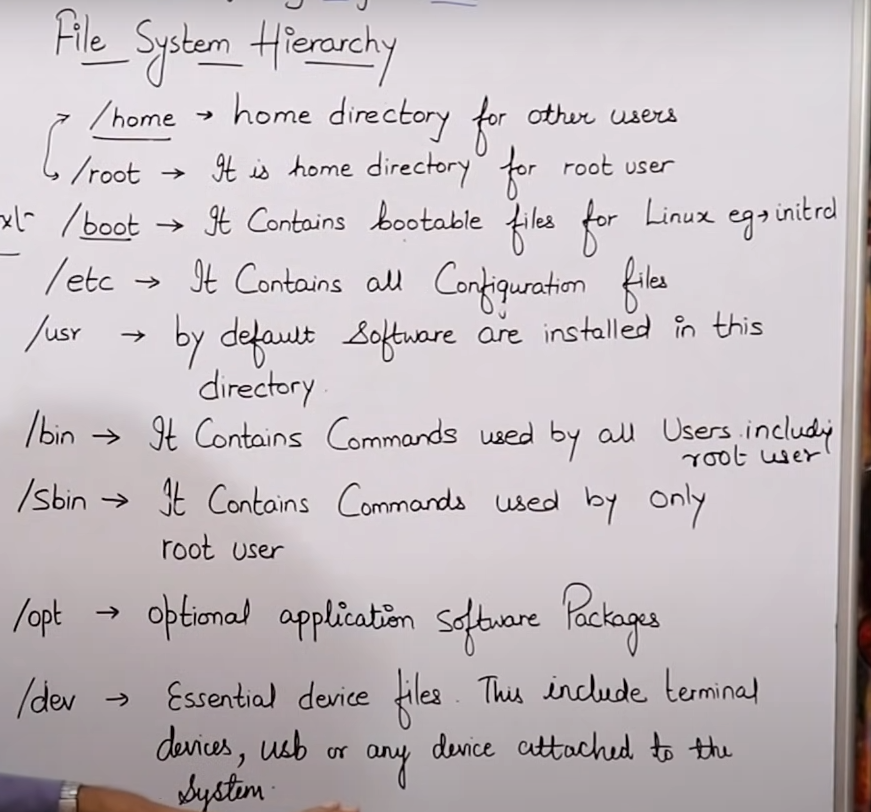 File System Hierarchy
/home → home directory for other users
/root → It is home directory for root user
/boot → It Contains bootable files for Linux eg→initrd
/etc → It Contains all Configuration files
/usr → by default Software are installed in this
directory.
/bin → It Contains Commands used by all Users includig
root user
/Sbin → It Contains Commands used by only
root user
/opt → optional application Software Packages
/dev → Essential device files. This include terminal
devices, usb or any device attached to the
System.